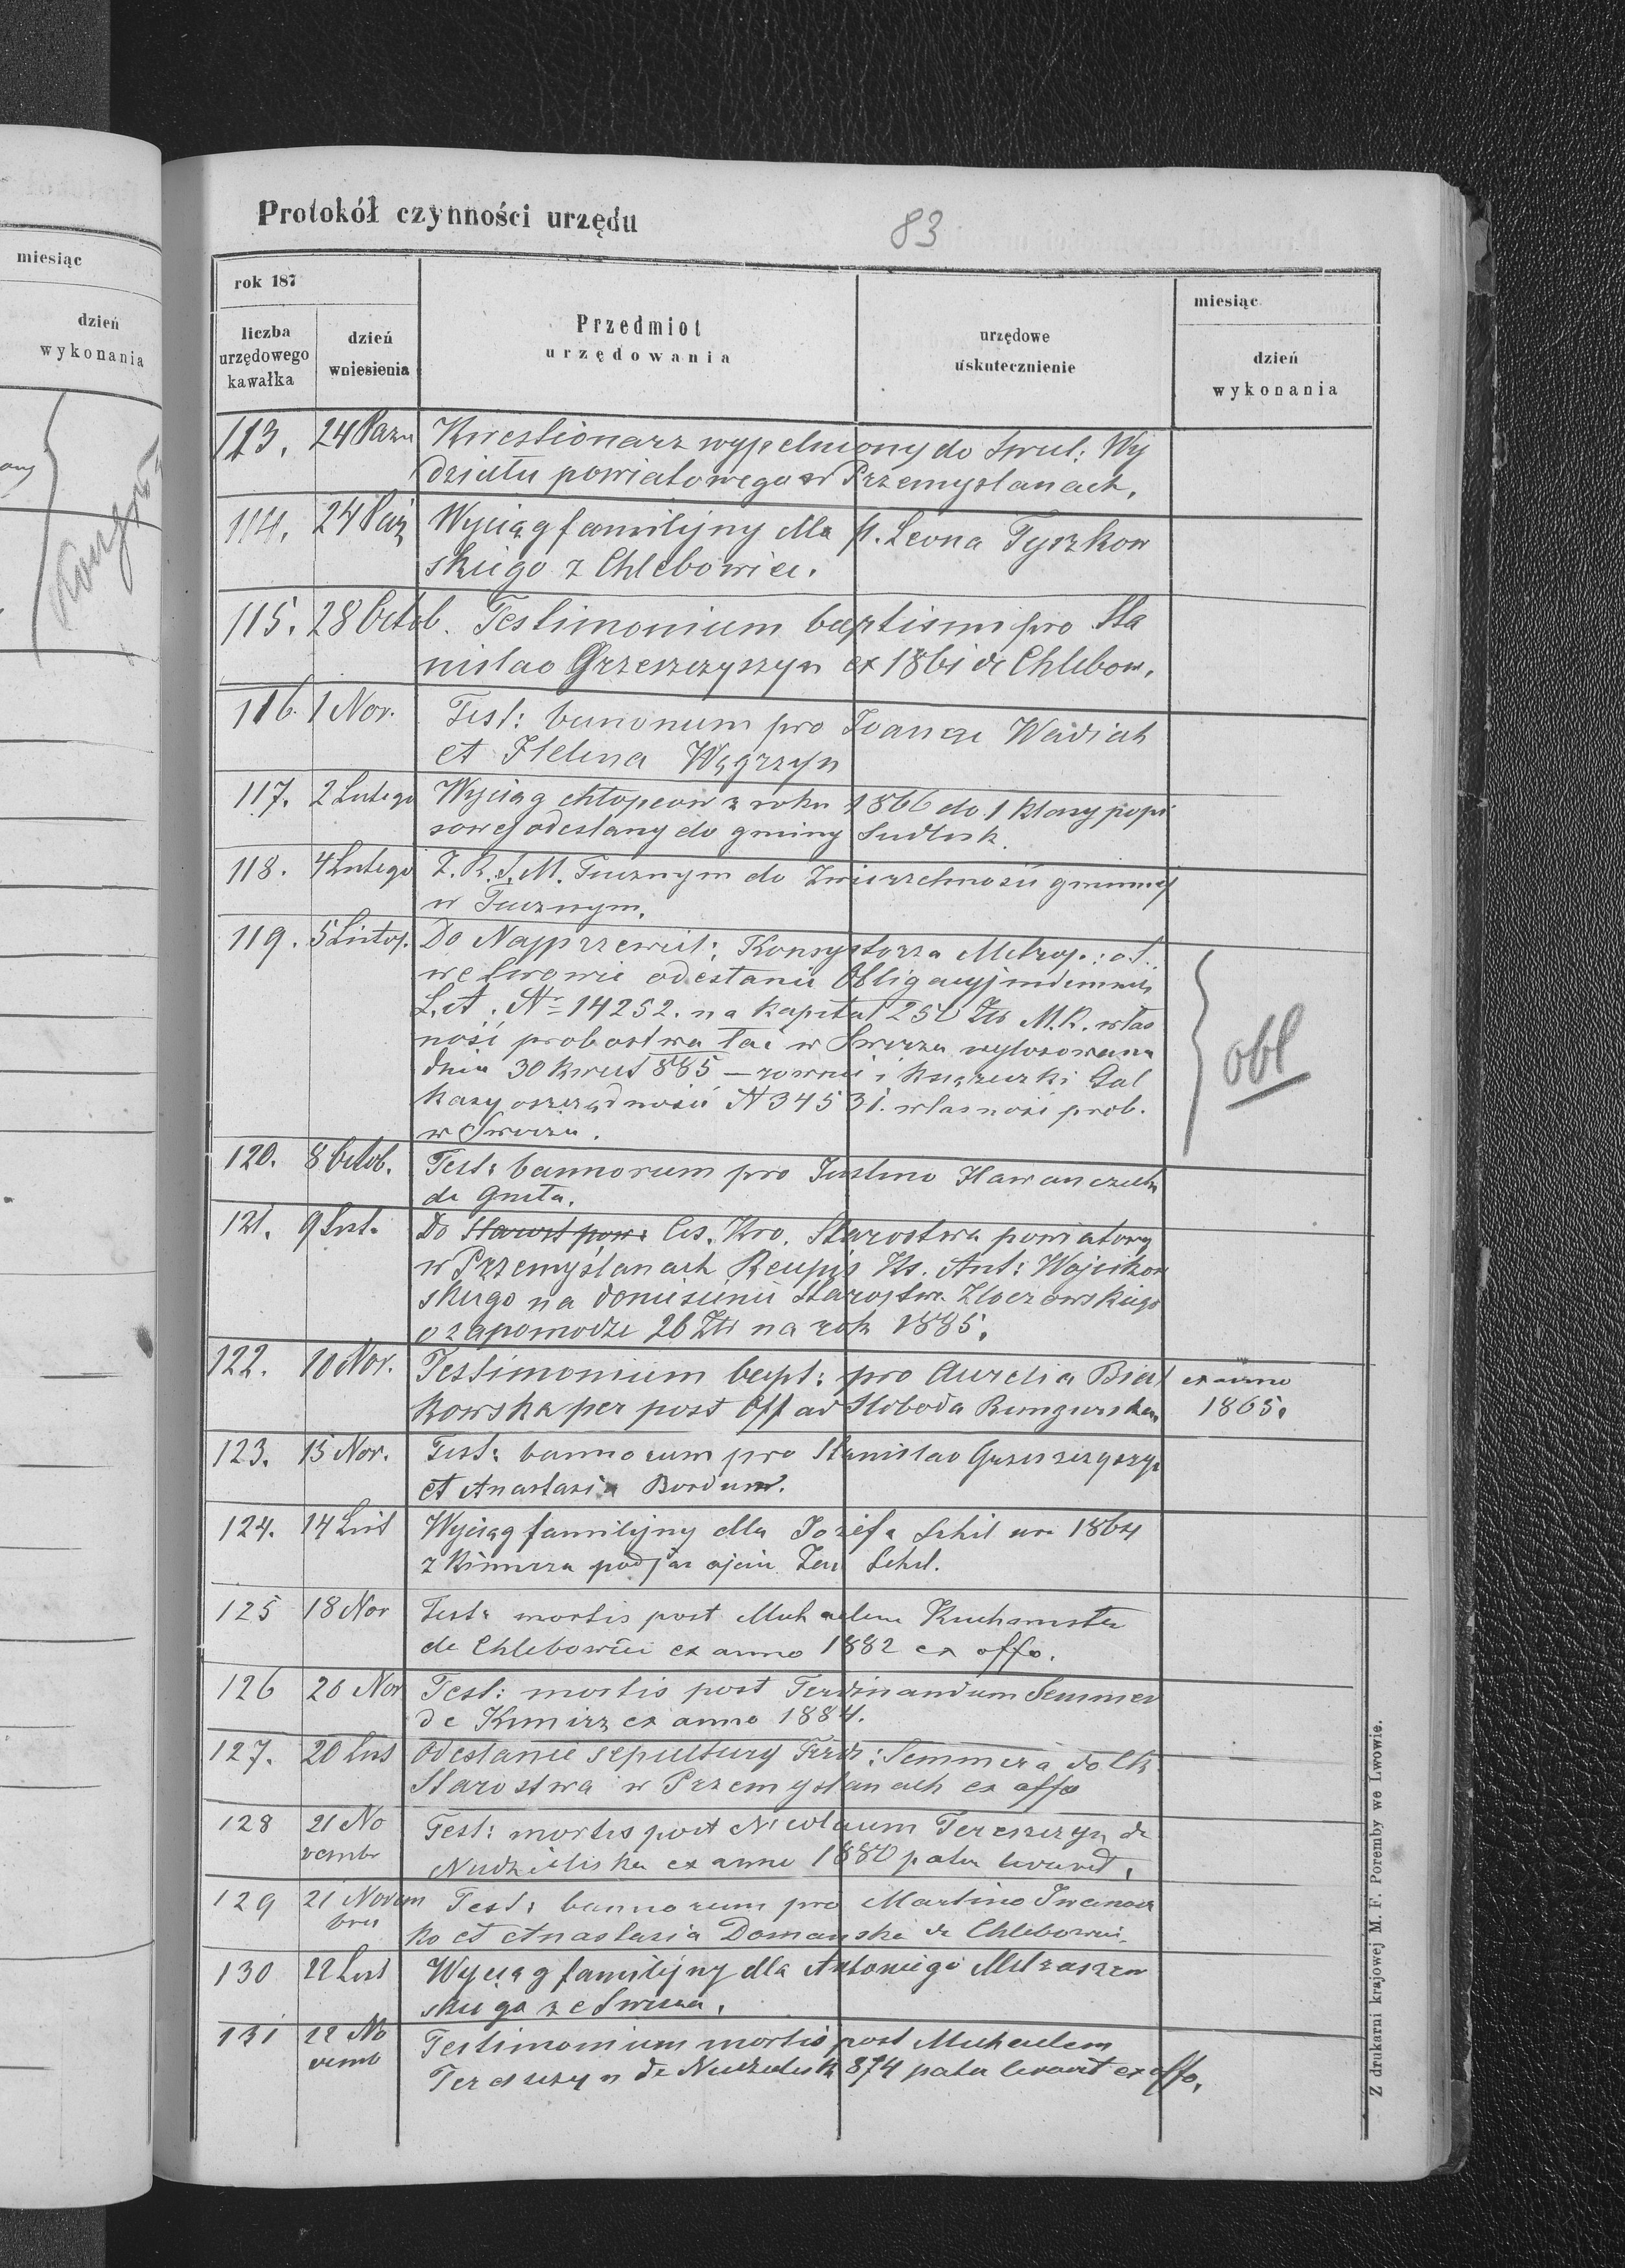 Protokół czynności urzędu
83
rok 187
miesiąc
liczba urzędowego kawałka
dzień wniesienia
Przedmiot urzędowania
urzędowe uskutecznienie
dzień wykonania
miesiąc
dzień
wykonania
113. 24 Paźń Kwestionarz wypełniony do Świet: Wy
działu powiatowego w Przemyślanach.
114. 24 Paź Wyciąg familijny dla p. Leona Tyszkow
skiego z Chlebowic.
115. 28 Octob. Testimonium baptismi pro Sta
nislao Grzeszczyszyn ex 1861 de Chlebow.
116. 1 Nov. Test: banonum pro Joanne Wadiach
et Helena Węgrzyn
117. 2 Lutego Wyciąg chłopców z roku 1866 do 1 klasy popi
sowej odesłany do gminy
118. 4 Lutego Z. R. S. M. Tucznym do Zwierzchności gminnej
w Tucznym.
119. 5 Listop. Do Najprzewiel: Konsystorza Metrop: o. ł.
we Lwowie odesłanie Obligacyj indemniz
Lit. A. Nr 14252. na kapitał 250 Złr M.K. włas
ność probostwa łać w Swirzu wylosowana
dnia 30 kwiet 885 — rownie i książeczki Gal
kasy oszczędności N 34531. własność prob.
w Swirzu.
obl
120. 8 Octob. Test: bannorum pro Justino Hawanczuk
de
121. 9 List. Do Starost pow: Ces. Kro. Starostwa powiatowy
w Przemyślanach Recepis Ks. Ant: Wojcikow
skiego na doniesienie Starostwa Złoczowskiego
o zapomodze 26 Złr na rok 1885.
122. 10 Nov. Testimonium bapt: pro Aurelia Biał ex anno
kowska per post Off ad Słoboda Rungurska 1865.
123. 13 Nov. Test: bannorum pro Stanislao Grzeszczyszyn
et Anastasia Bordun.
124. 14 List Wyciąg familijny dla Józefa Schil ur 1864
z Kimirza Schil.
125 18 Nov Test: mortis post Michaelem
de Chlebowice ex anno 1882 ex offo.
126 20 Nov Test: mortis post Ferdinandum Semmer
de Kimirz ex anno 1884.
127. 20 Lis Odesłanie sepultury Ferd: Semmera do CK
Starostwa w Przemyślanach ex offo
128 21 No
vembr Test: mortis post Nicolaum Tereszczyn de
Niedzieliska ex anno 1880
129 21 Novem
bris Test: bannorum pro Martino Iwanoc
ko et Anastasia Domanska de Chlebowic.
130 22 List Wyciąg familijny dla Antoniego Mitraszew
skiego ze Swirza.
131 22 No
vemb Testimonium mortis post Michaelem
Tereszczyn de Niedzielisk 874 ex offo.
Z drukarni krajowej M. F. Poremby we Lwowie.